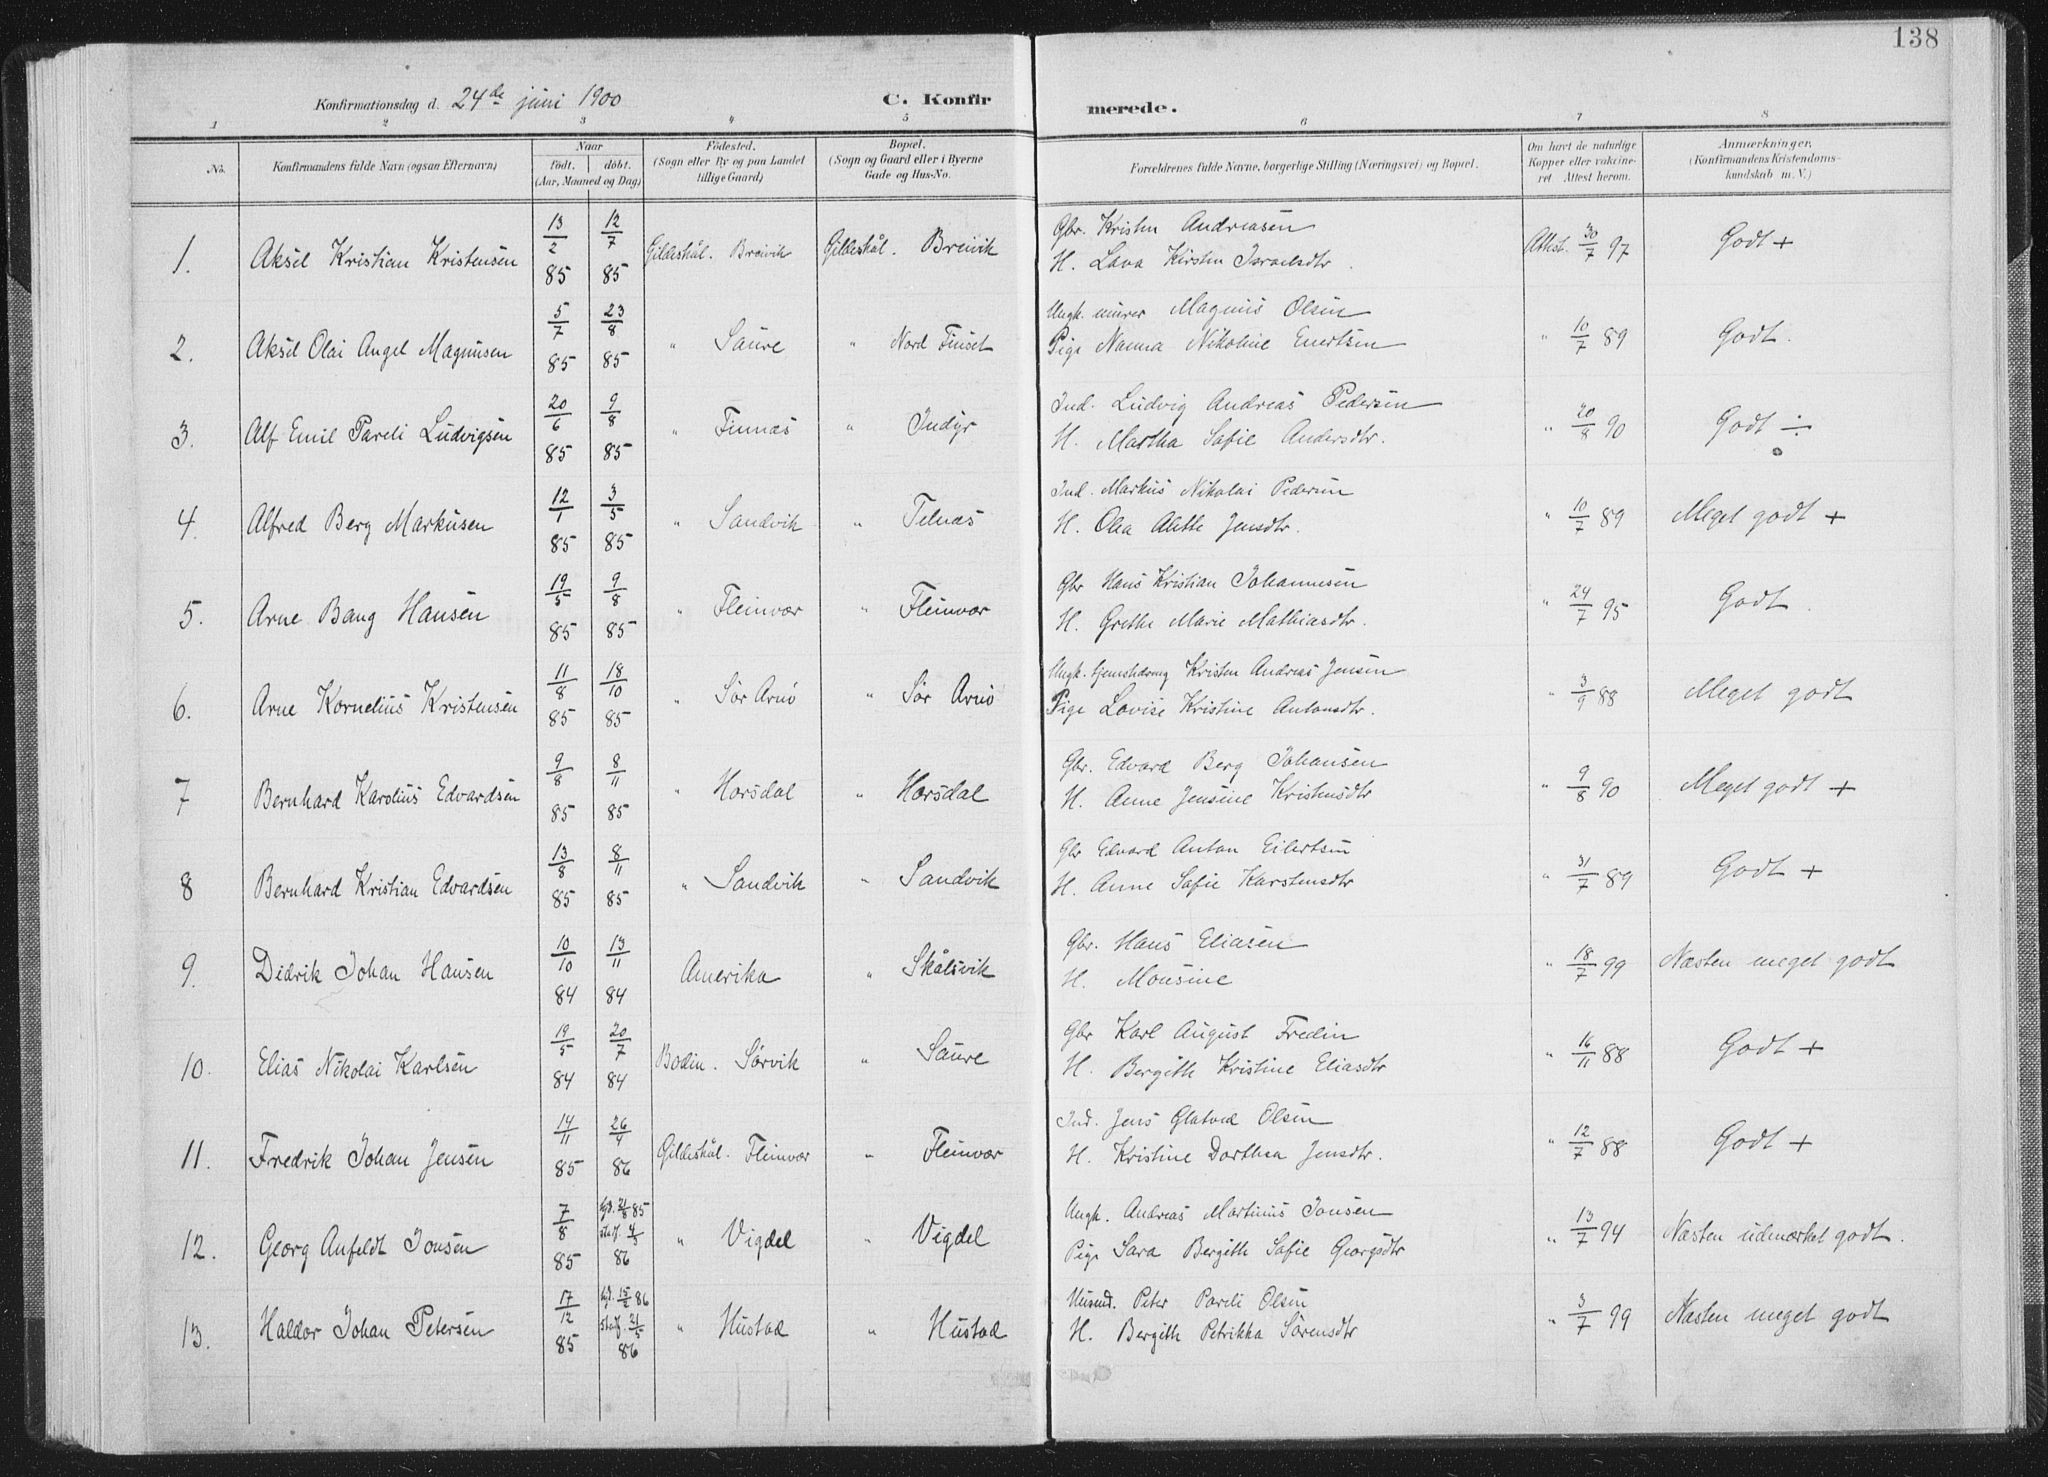 138
Konfirmationsdag d. 24de juni 1900 C. Konfir merede.
1 2 3 4 5 6 7 8
No. Konfirmandens fulde Navn (ogsaa Efternavn) Naar födt. döbt. (Aar, Maaned og Dag) Födested. (Sogn eller By og paa Landet tillige Gaard) Bopæl. (Sogn og Gaard eller i Byerne Gade og Hus-No. Forældrenes fulde Navne, borgerlige Stilling (Næringsvei) og Bopæl. Om havt de naturlige Kopper eller vaccineret Attest herom. Anmerkninger, (Konfirmandens Kristendomskundskab m. V.)
1. Aksel Kristian Kristensen 13/2 85 12/7 85 Gildeskål. Breivik Gildeskål. Breivik Gbr. Kristen Andreasen
H. Lava Kirsten Israelsdtr. Attest. 30/7 97 Godt +
2. Aksel Olai Angel Magnusen 5/7 85 23/8 85 " Saure " Nord Finset Ungk. murer Magnus Olsen
Pige Nanna Nikoline Enertsen " 10/7 89 Godt.
3. Alf Emil Pareli Ludvigsen 20/6 85 9/8 85 " Finnæs " Indyr Ind. Ludvig Andreas Pedersen
H. Martha Sofie Andersdtr. " 20/8 90 Godt ÷
4. Alfred Berg Markusen 12/1 85 3/5 85 " Sandvik " Telnæs Ind. Markus Nikolai Pedersen
H. Olea Alette Jensdtr. " 10/7 89 Meget godt +
5. Arne Bang Hansen 19/5 85 9/8 85 " Fleinvær " Fleinvær Gbr Hans Kristian Johannesen
H. Grethe Marie Mathiasdtr. " 24/7 95 Godt.
6. Arne Kornelius Kristensen 11/8 85 18/10 85 " Sör Arnö " Sör Arnö Ungk. tjenestedreng Kristen Andreas Jensen
Pige Lovise Kristine Antonsdtr. " 3/9 88 Meget godt
7 Bernhard Karolius Edvardsen 9/8 85 8/11 85 " Horsdal " Horsdal Gbr. Edvard Berg Johansen
H. Anne Jensine Kristensdtr " 9/8 90 Meget godt +
8 Bernhard Kristian Edvardsen 13/8 85 8/11 85 " Sandvik " Sandvik Gbr Edvard Anton Eilertsen
H. Anne Sofie Karstensdtr " 31/7 89 Godt +
9. Didrik Johan Hansen 10/10 84 13/11 84 Amerika " Skålsvik Gbr. Hans Eliasen
H. Monsine " 18/7 99 Næsten meget godt
10. Elias Nikolai Karlsen 19/5 84 20/7 84 Bodin. Sörvik " Saure Gbr Karl August Fredin
H. Bergith Kristine Eliasdtr " 16/11 88 Godt +
11. Fredrik Johan Jensen 14/11 85 26/4 86 Gildeskål. Fleinvær " Fleinvær Ind. Jens Glatved Olsen
H. Kristine Dorthea Jensdtr. " 12/7 88 Godt +
12. Georg Anfeldt Jonsen 7/8 85 hjd. 21/8 85 stadf. 4/5 86 " Vigdel " Vigdel Ungk. Andreas Martinus Jonsen
Pige Sara Bergith Sofie Georgsdtr " 13/7 94 Næsten udmærket godt.
13. Haldor Johan Petersen 17/12 85 hjd. 15/2 86 stadf. 21/5 86 " Hustad " Hustad Husmd. Peter Pareli Olsen
H. Bergith Petrikka Sörensdtr " 3/7 99 Næsten meget godt